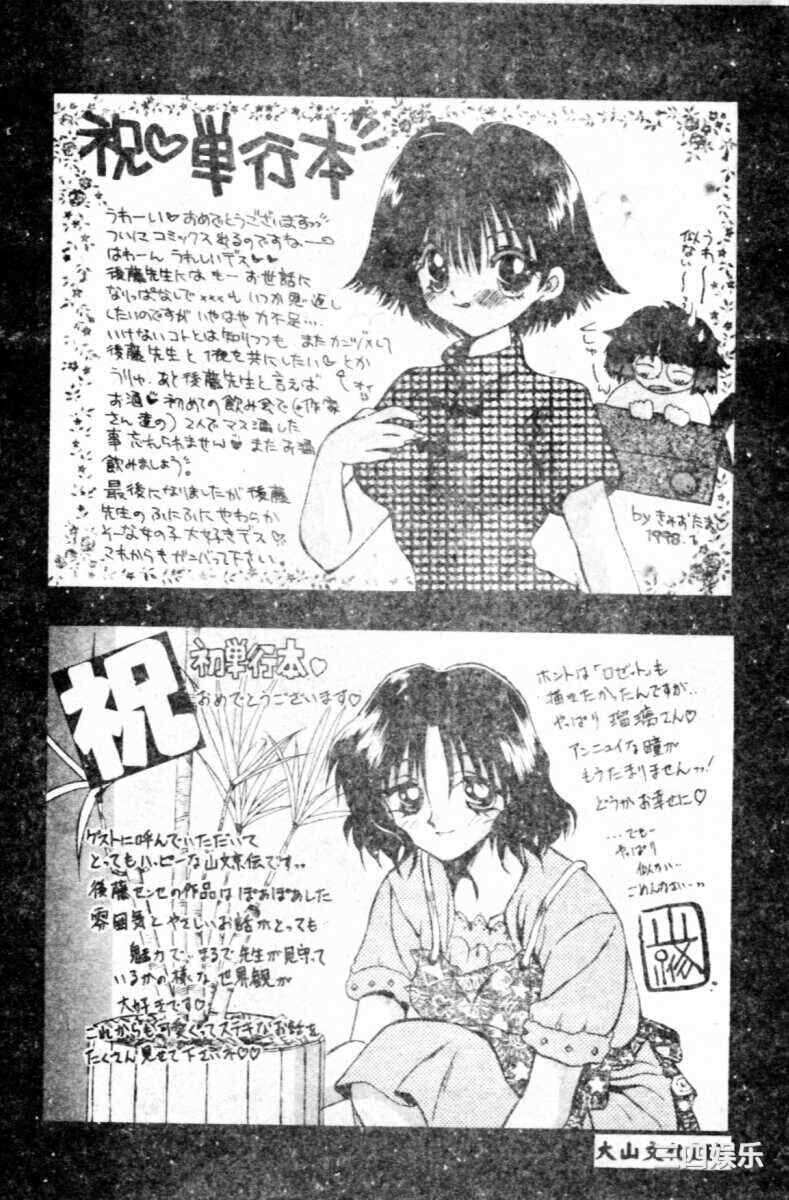 祝♡単行本
うわーい♡おめでとうございますっっ
ついにコミックス出るのですねー
はわーん うれしいデス♡♡
後藤先生には もー お世話に
なりっぱなしで xxxも いつか恩返し
したいのですが いやはや 力不足…
いけないコトとは知りつつも また
後藤先生と1夜を共にしたい♡とか
うりゃ。あと後藤先生と言えば
お酒♡初めての飲み会で(作家
さん達の)2人でマス酒した
事忘れられません♡またお酒
飲みましょう。
最後になりましたが後藤
先生のふにふにやわらか
そーな女の子大好きデス♡
これからもガンバって下さい。
うわ〜
似ない〜
by きみおたま
1998.
祝
初単行本♡
おめでとうございます♡
ゲストに呼んでいただいて
とってもハッピーな山文京伝です。
後藤センセの作品は ぽあぽあした
雰囲気と やさしいお話が とっても
魅力で… まるで先生が見守って
いるかの様な 世界観が
大好きです♡
これからも可愛くってステキなお話を
たくさん見せて下さいネ♡♡
ホントは「ロゼット」も
描きたかったんですが…
やっぱり 瑠璃さん♡
アンニュイな瞳が
もうたまりませんっ!
どうかお幸せに♡
…でもー
やっぱり
似ない…
ごめんなさい…
大山文
三四娱乐